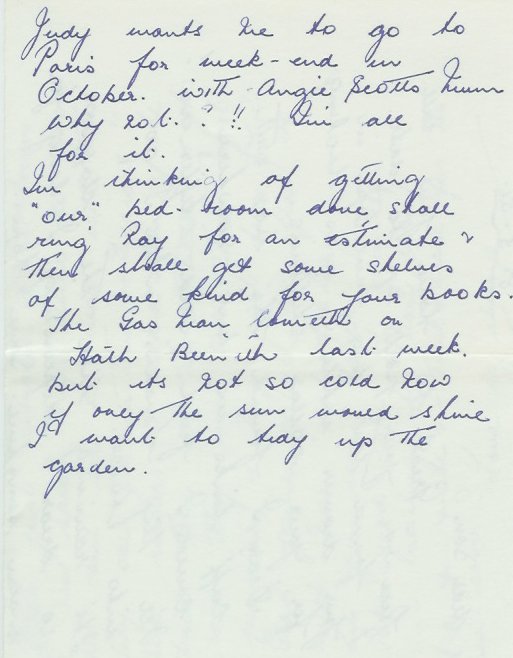 Judy wants me to go to
Paris for week-end in
October. with Angie Scotts Mum
why not. ? !! I'm all
for it.
Im thinking of getting
"our" bed-room done, shall
ring Ray for an estimate &
then shall get some shelves
of some kind for your books.
The Gas Man Cometh or
Hath Been'ith last week.
but its not so cold now
if only the sun would shine
I want to tidy up the
garden.